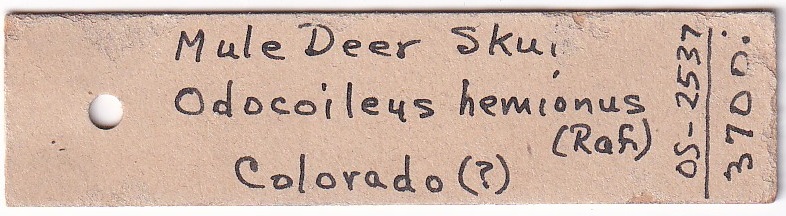 Mule Deer Sku
Odocoileus hemionus
(Raf.)
Colorado (?)
OS-2537